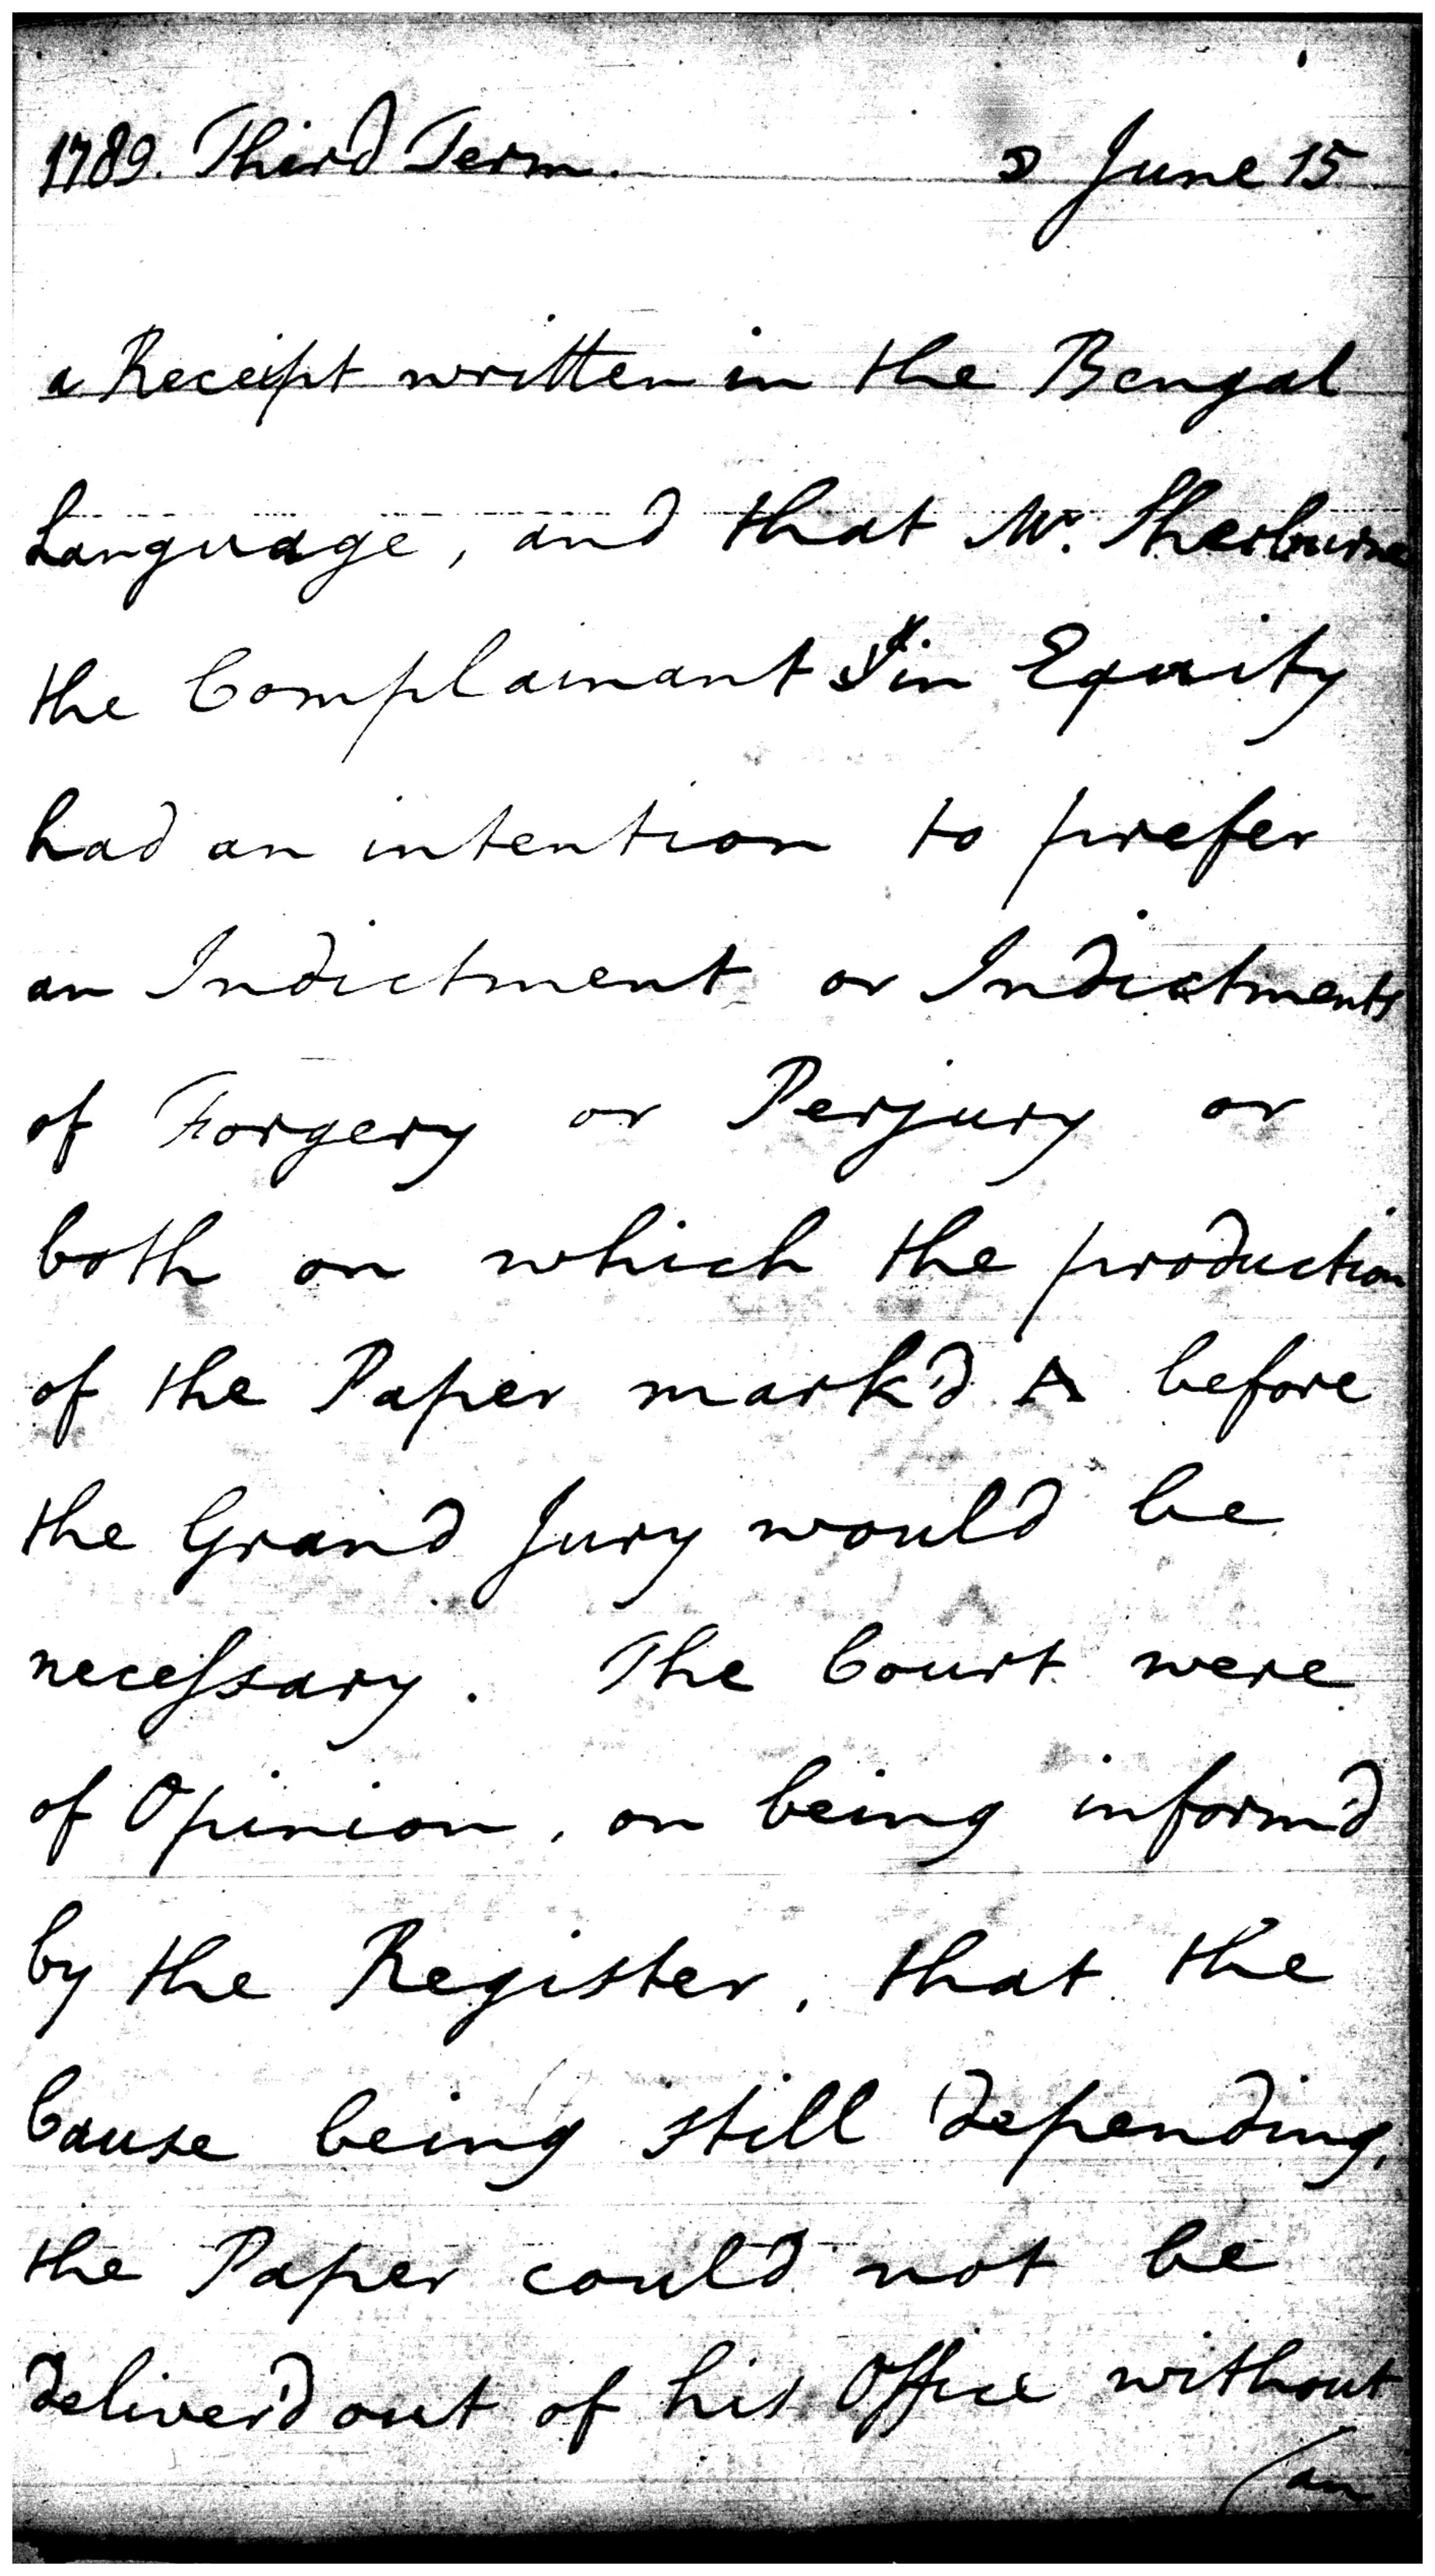 1789. Third Term. ☽ June 15
a Receipt written in the Bengal
Language, and that Mr. Sherburne
the Complainant in Equity
had an intention to prefer
an Indictment or Indictments
of Forgery or Perjury or
both on which the production
of the Paper mark'd A before
the Grand Jury would be
necessary. The Court were
of Opinion, on being inform'd
by the Register, that the
Cause being still depending,
the Paper could not be
deliver'd out of his Office without
(an